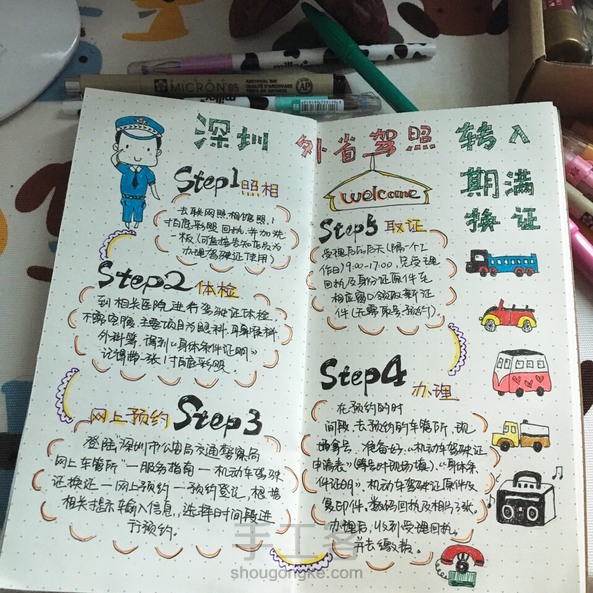 深圳 外省驾照 转入
期满
换证
Step1 照相
去联网照相馆照1
寸白底彩照回执,并加洗
板(可直接告知店员为
办理驾驶证使用)
Step2 体检
到相关医院进行驾驶证体检,
不需空腹,主要项目为眼科,耳鼻喉科,
外科等,得到"身体条件证明"
记得带一张1寸白底彩照
网上预约 Step3
登陆"深圳市公安局交通警察局
网上车管所"—服务指南—机动车驾驶
证换证—网上预约—预约登记,根据
相关提示输入信息,选择时间段进
行预约.
welcome
Step5 取证
受理后后天(隔一个工
作日)9:00-17:00,凭受理
回执及身份证原件至
相应窗口领取新证
件(无需取号、预约).
Step4 办理
在预约的时
间段,去预约的车管所,现
场拿号,准备好"机动车驾驶证
申请表"(等号时现场填),"身体条
件证明",机动车驾驶证原件及
复印件,数码回执及相片3张,
办理后,收到受理回执,
并去缴费.
MICRON 05
手工客
shougongke.com